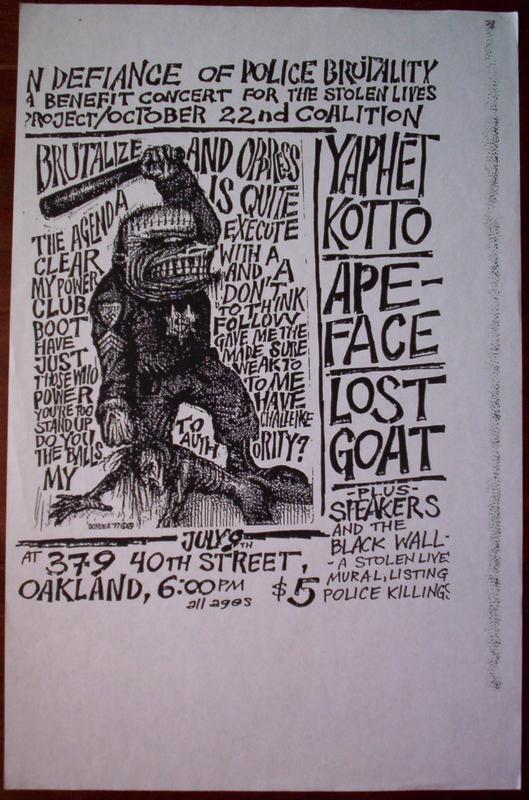 N DEFIANCE OF POLICE BRUTALITY
A BENEFIT CONCERT FOR THE STOLEN LIVES
PROJECT/OCTOBER 22nd COALITION
BRUTALIZE AND OPPRESS
THE AGENDA IS QUITE
CLEAR EXECUTE
MY POWER WITH A
CLUB AND A
BOOT DON'T
HAVE TO THINK
JUST FOLLOW
THOSE WHO GAVE ME THE
POWER MAKE SURE
YOU'RE TOO WEAK TO
STAND UP TO ME
DO YOU HAVE
THE BALLS TO CHALLENGE
MY AUTHORITY?
YAPHET
KOTTO
APE-
FACE
LOST
GOAT
-PLUS-
SPEAKERS
AND THE
BLACK WALL-
- A STOLEN LIVE
MURAL, LISTING
POLICE KILLINGS
JULY 9TH
AT 379 40TH STREET,
OAKLAND, 6:00 PM $5
all ages